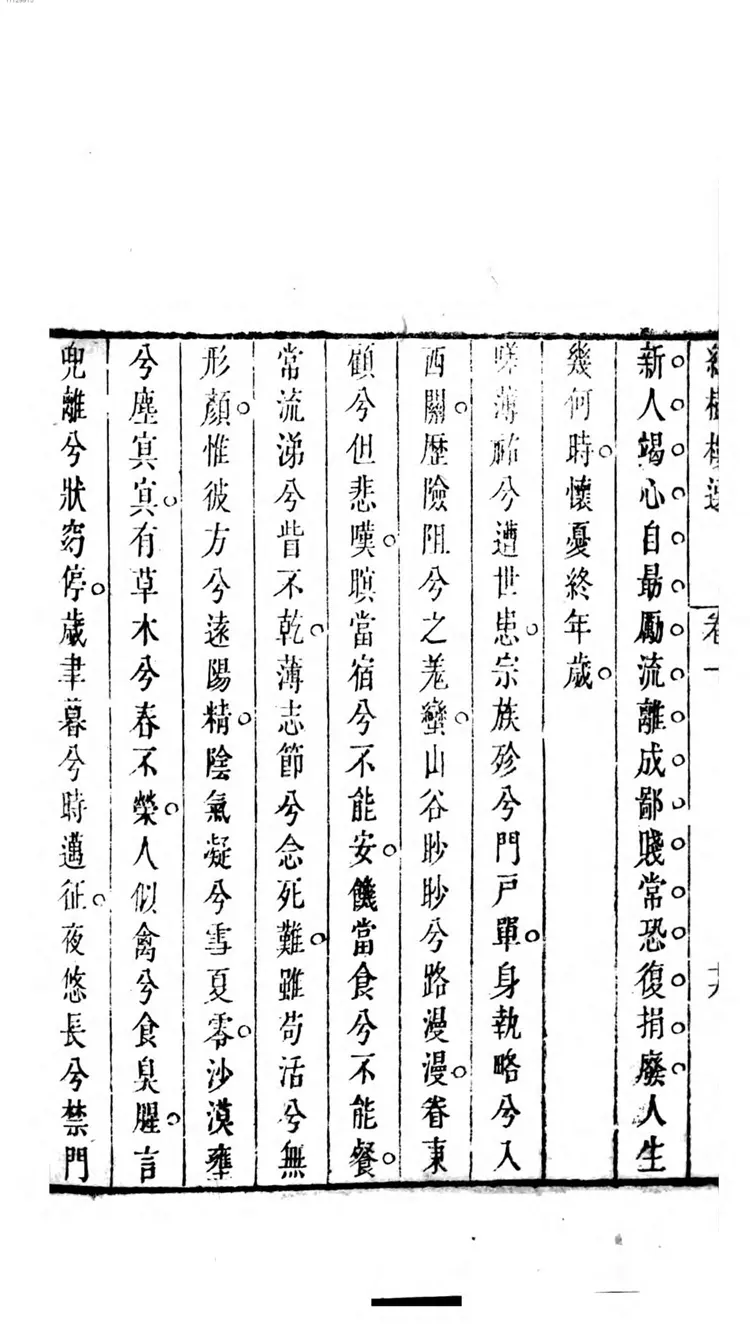 卷一
新人竭心自朂勵流離成鄙賤常恐復捐廢人生
幾何時懷憂終年歲
嗟薄祜兮遭世患宗族殄兮門戸單身執略兮入
西關歴險阻兮之羌蠻山谷眇眇兮路漫漫眷東
顧兮但悲嘆瞑當宿兮不能安饑當食兮不能餐
常流涕兮眥不乾薄志節兮念死難雖茍活兮無
形顏惟彼方兮遠陽精陰氣凝兮雪夏零沙漠壅
兮塵冥冥有草木兮春不榮人似禽兮食臭腥言
兜離兮狀窈停歲聿暮兮時邁征夜悠長兮禁門